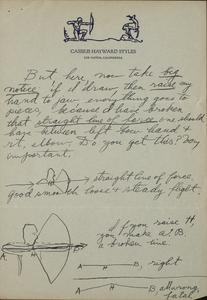 CASSIUS HAYWARD STYLES
But, here, now take big
notice, if I draw, then raise my
hand to jaw, everything goes to
pieces, because I have broken
that straight line of force one should
have between left bow hand &
rt. elbow. Do you get this? Very
important.
straight line of force,
Good smooth loose & steady flight.
If you raise H,
you make a B,
a broken line.
A H B
A H B, right
A H B, all wrong,
fatal